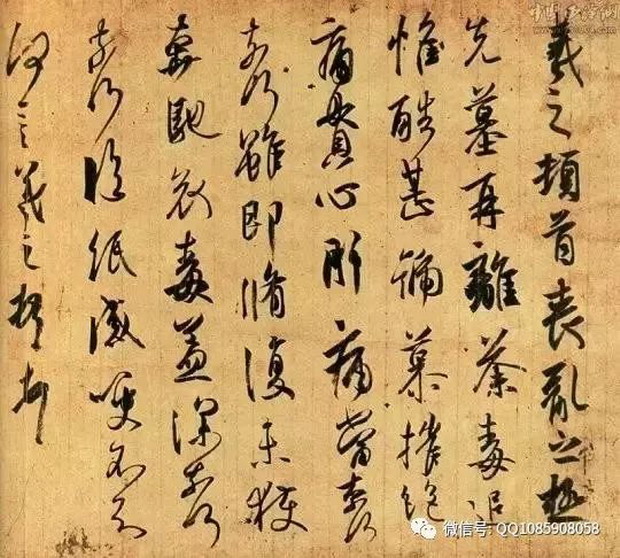 羲之頓首喪亂之極
先墓再離荼毒追
惟酷甚號慕摧絕
痛貫心肝痛當柰何
柰何雖即脩復未獲
奔馳哀毒益深柰何
柰何臨紙感哽不知
何言羲之頓首頓首
微信号: QQ1085908058